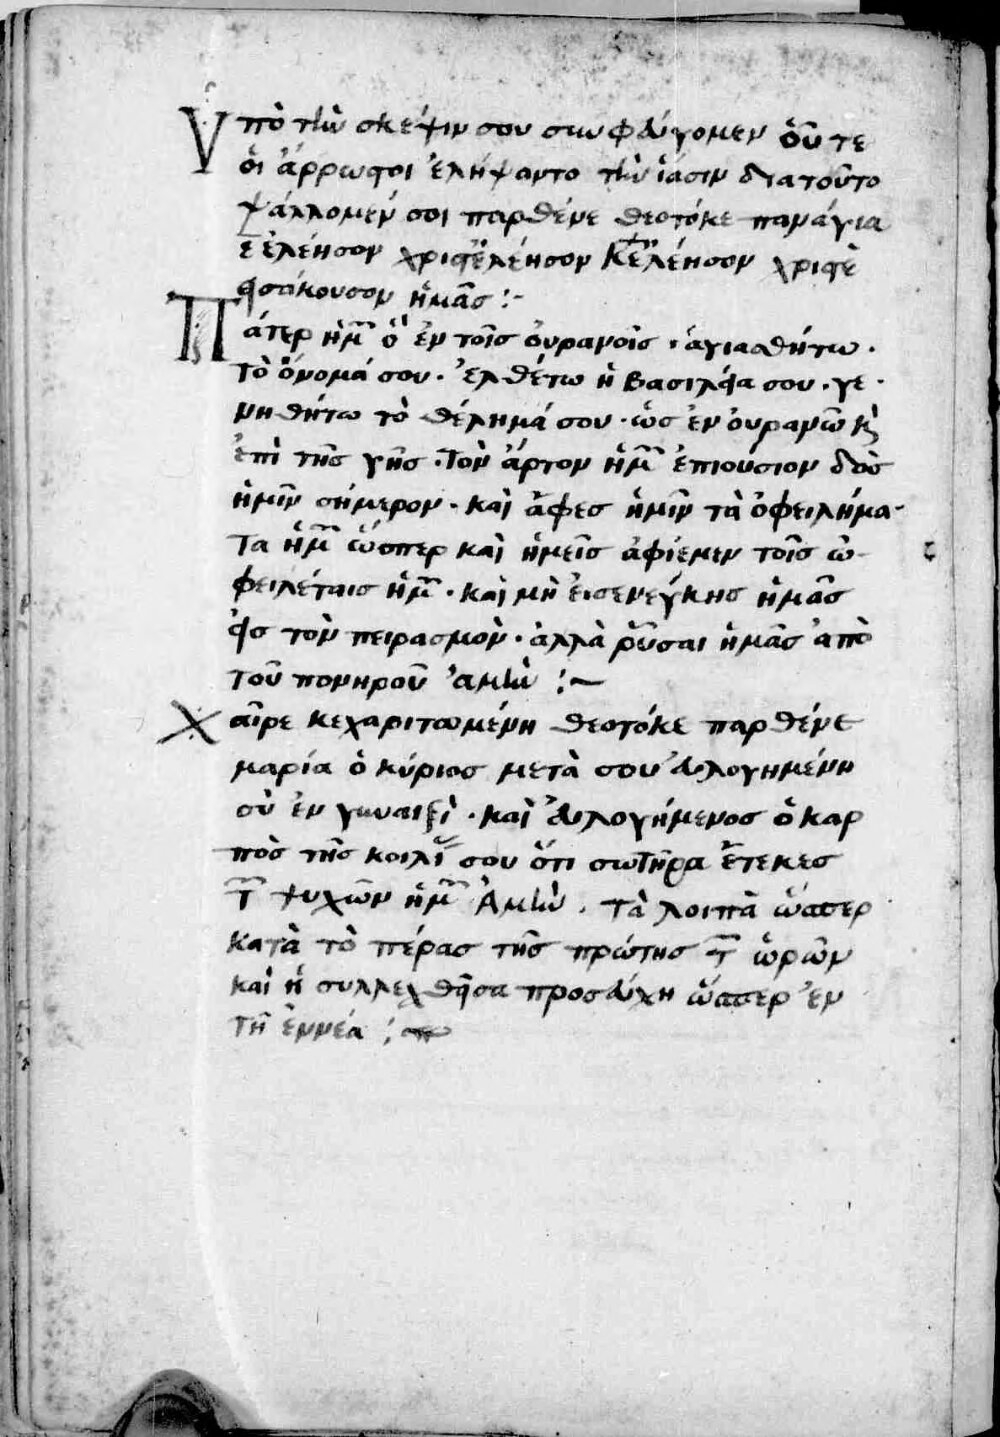 Ὑπὸ τὴν σκέψιν σου συμφεύγομεν ὁῦ τε
ὁι ἄρρωστοι ἐλήψαντο τὴν ἴασιν διατοῦτο
ψάλλομέν σοι παρθένε θεοτόκε παναγια
ἐλέησον χριστὲ ἐλέησον Κε ἐλέησον χριστὲ
εἰσάκουσον ἡμᾶς :-
Πάτερ ἡμ͂ ὁ ἐν τοῖς οὐρανοῖς · ἁγιασθήτω ·
τὸ ὄνομά σου · ἐλθέτω ἡ βασιλεία σου · γε ·
νηθήτω τὸ θέλημά σου · ὡς ἐν οὐρανῶ κ̀
ἐπὶ τῆς γῆς · τὸν ἄρτον ἡμ͂ ἐπιούσιον δὸς
ἡμῖν σήμερον · καὶ ἄφες ἡμῖν τὰ ὀφειλήμα-
τα ἡμ͂ ὥσπερ καὶ ἡμεῖς ἀφίεμεν τοῖς ὠ-
φειλέταις ἡμ͂ · καὶ μὴ εἰσενέγκης ἡμᾶς
εἰς τὸν πειρασμὸν · ἀλλὰ ῥῦσαι ἡμᾶς ἀπὸ
τοῦ πονηροῦ ἀμὴν :~
Χαῖρε κεχαριτωμένη θεοτόκε παρθένε
μαρία ὁ κύριος μετὰ σου εὐλογημένη
σὺ ἐν γυναιξὶ · καὶ εὐλογήμενος ὁ καρ
πὸς τῆς κοιλί σου ὅτι σωτῆρα ἔτεκες
τ͂ ψυχῶν ἡμ͂ Ἀμὴν . Τὰ λοιπὰ ὥσπερ
κατὰ τὸ πέρας τῆς πρώτης τ͂ ὡρῶν
καὶ ἡ συλλεχθῆσα προσεύχη ὥσπερ ἐν
τῆ ἐννέα :~